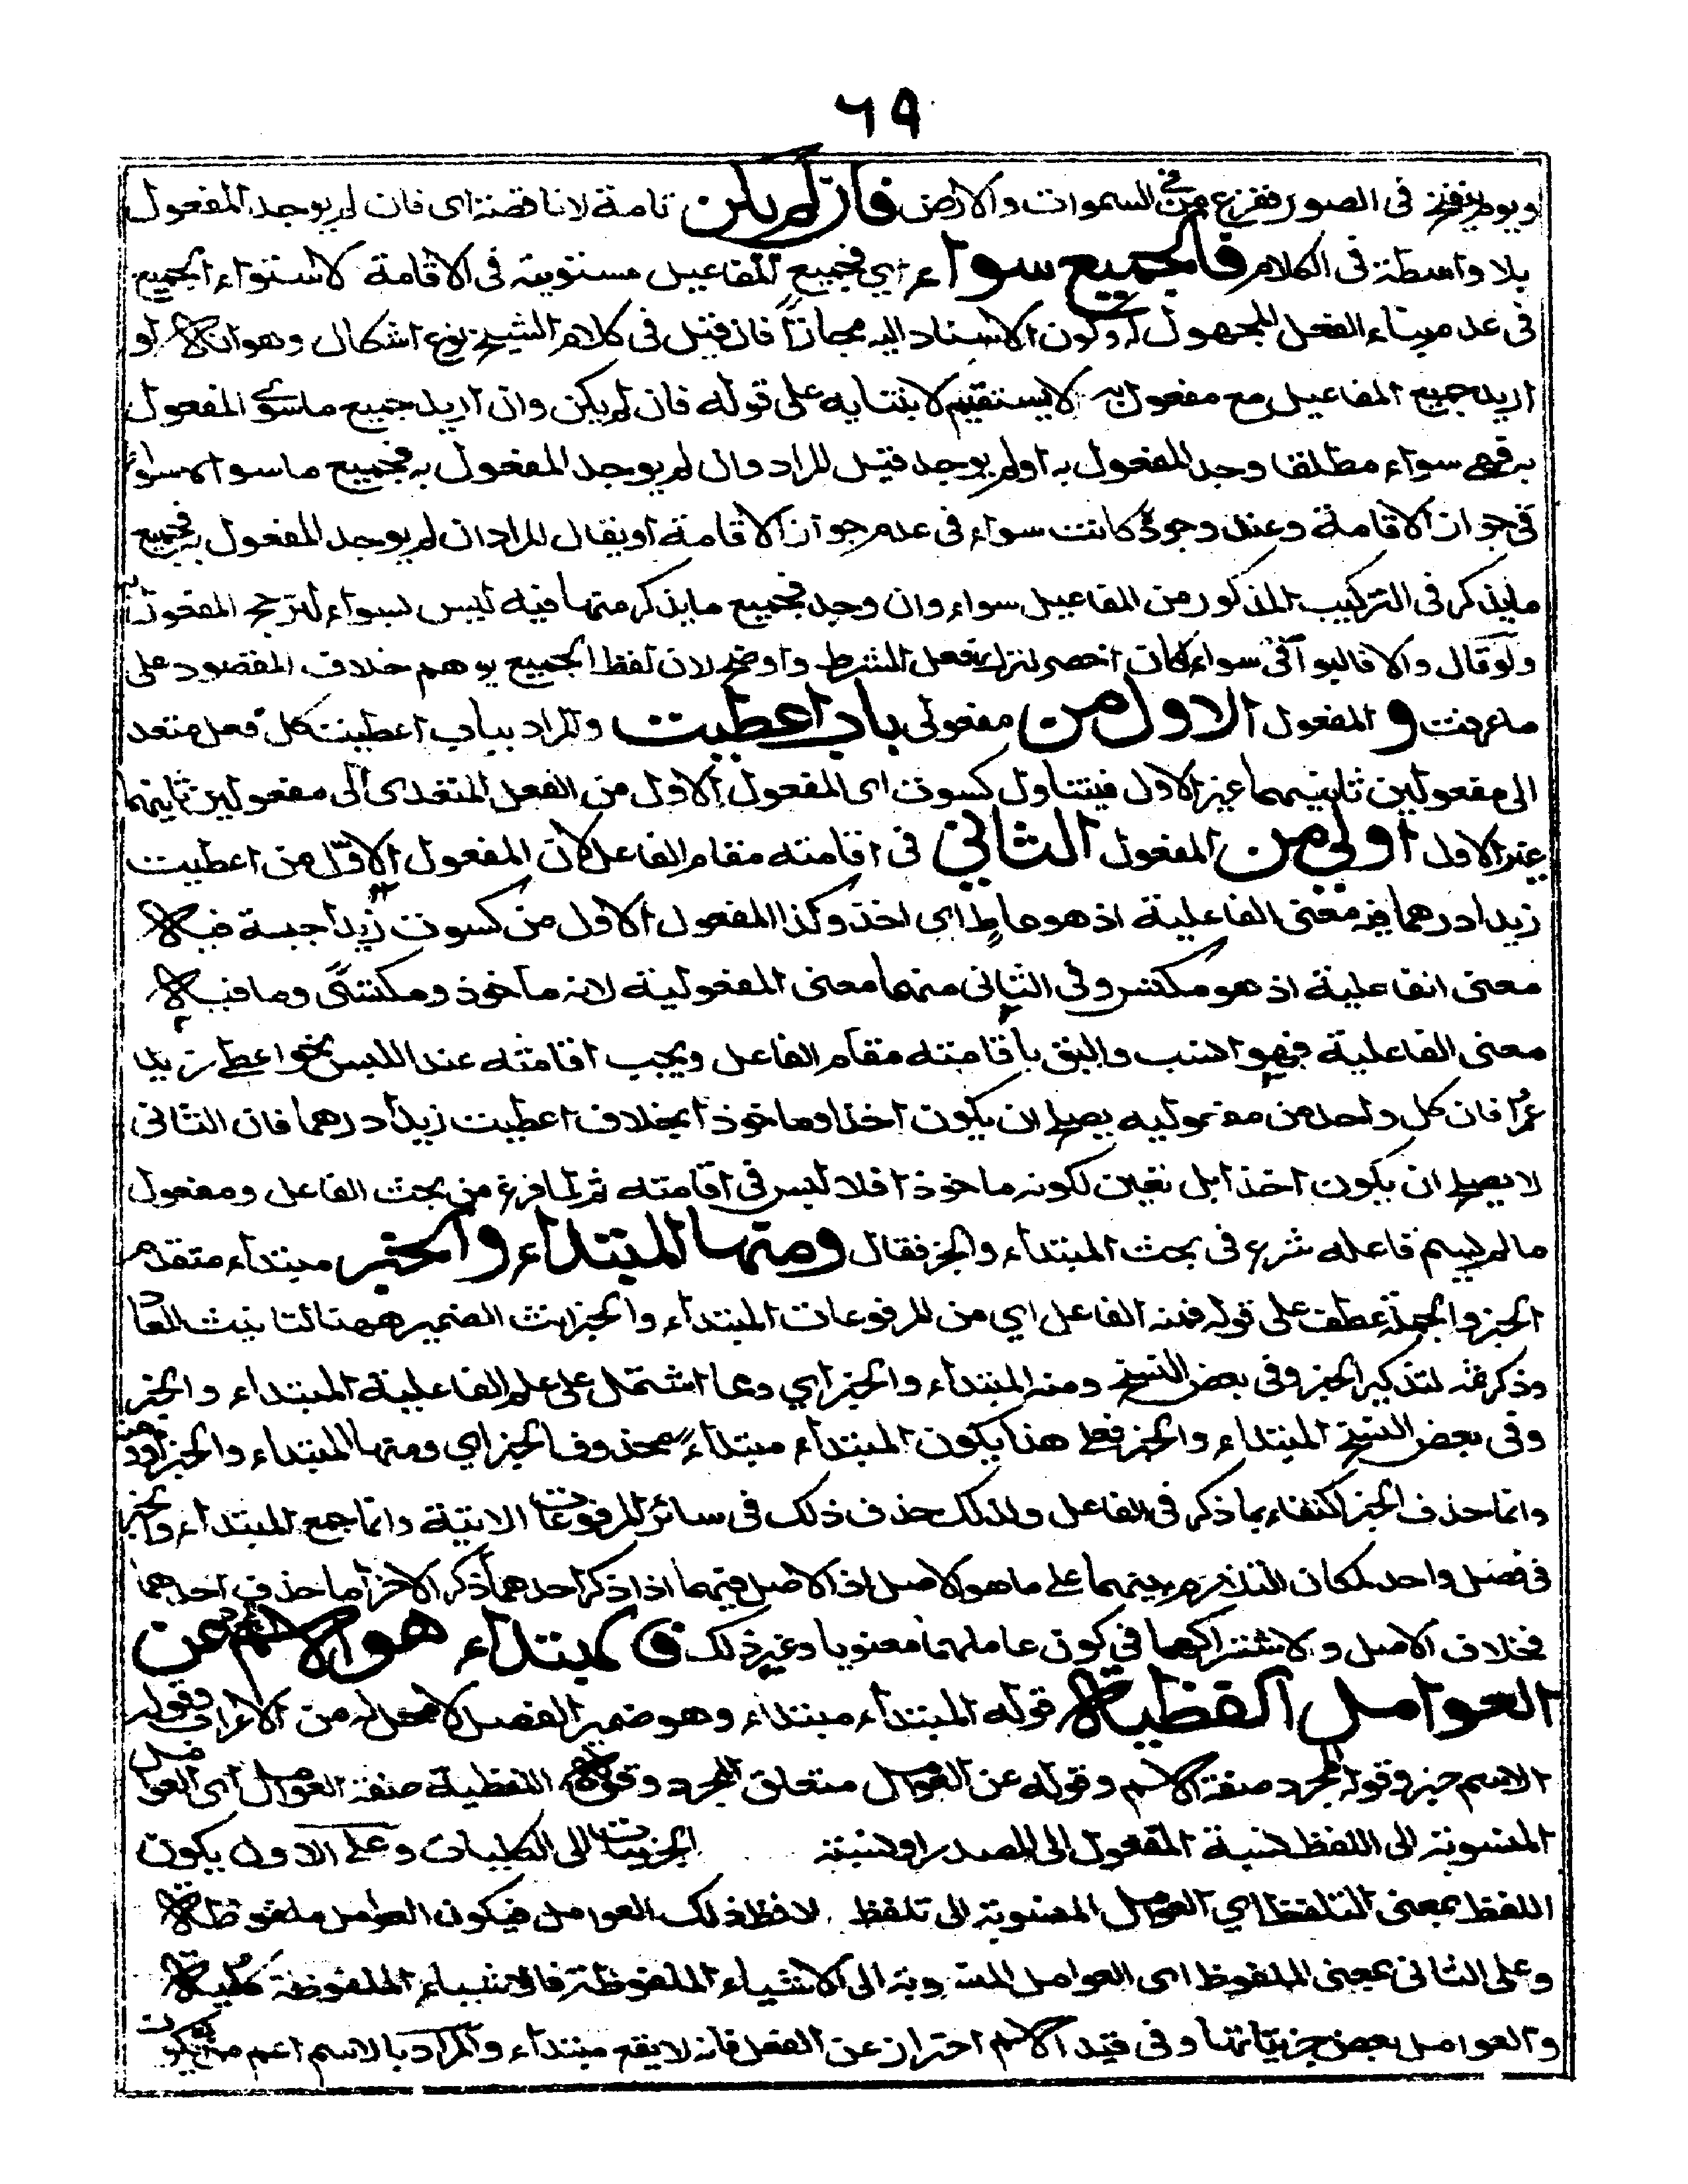 ٦٩
ويوم ينفخ فى الصور ففزع من فى السموات والارض فان لم يكن تامة لا ناقصة اى فان لم يوجد المفعول
بلا واسطة فى الكلام فالجميع سواء اي فجميع المفاعيل مستوية فى الاقامة لاستواء الجميع
فى عدم بناء الفعل المجهول له وكون الاسناد اليه مجازاً فان قيل فى كلام الشيخ نوع اشكال وهو انه لو
اريد جميع المفاعيل مع مفعول به لا يستقيم لابتنايه على قوله فان لم يكن وان اريد جميع ما سوى المفعول
به فهى سواء مطلقا وجد المفعول به او لم يوجد قيل المراد وان لم يوجد المفعول به فجميع ما سواه سواء
فى جواز الاقامة وعند وجوده كانت سواء فى عدم جواز الاقامة او يقال المراد ان لم يوجد المفعول به فجميع
ما يذكر فى التركيب المذكور من المفاعيل سواء وان وجد فجميع ما يذكر منها فيه ليس بسواء لترجح المفعول به
ولو قال والا فالبواقى سواء لكان اخصر لترك فعل الشرط واوضح لان لفظ الجميع يوهم خلاف المقصود على
ما عرفت و المفعول الاول من مفعولى باب اعطيت والمراد بباب اعطيت كل فعل متعد
الى مفعولين ثانيهما غير الاول فيتناول كسوت اى المفعول الاول من الفعل المتعدى الى مفعولين ثانيهما
غير الاول اولى من المفعول الثاني فى اقامته مقام الفاعل لان المفعول الاوّل من اعطيت
زيدا درهما فيه معنى الفاعلية اذ هو عاطٍ اى اخذ وكذا المفعول الاول من كسوت زيداً جبة فيه
معنى الفاعلية اذ هو مكتس وفى الثانى منهما معنى المفعولية لانه ماخوذ ومكتسًى وما فيه
معنى الفاعلية فهو انسب واليق باقامته مقام الفاعل ويجب اقامته عند اللبس نحو اعطى زيد
عمرًا فان كل واحد من مفعوليه يصلح ان يكون اخذا وماخوذا بخلاف اعطيت زيداً درهما فان الثانى
لا يصلح ان يكون اخذا بل تعين لكونه ماخوذا فلا لبس فى اقامته ثم لما فرغ من بحث الفاعل ومفعول
ما لم يسم فاعله شرع فى بحث المبتداء والخبر فقال ومنها المبتداء والخبر مبتداء متقدم
الخبر والجملة عطف على قوله فمنه الفاعل اي من المرفوعات المبتداء والخبر انث الضمير ههنا لتانيث المعاد
وذكر ثمه لتذكير الخبر وفى بعض النسخ ومنه المبتداء والخبر اي ومما اشتمل على علم الفاعلية المبتداء والخبر
وفى بعض النسخ المبتداء والخبر فعلى هذا يكون المبتداء مبتداءً محذوف الخبر اي ومنها المبتداء والخبر او ومنه
وانما حذف الخبر اكتفاء بما ذكر فى الفاعل ولذلك حذف ذلك فى سائر المرفوعات الاتية وانما جمع المبتداء والخبر
فى فصل واحد لمكان التلازم بينهما على ما هو الاصل اذ الاصل فيهما اذا ذكر احدهما ذكر الاخر اما حذف احدهما
فخلاف الاصل ولاشتراكهما فى كون عاملهما معنويا وغير ذلك فالمبتداء هو الاسم المجرد عن
العوامل اللفظية قوله المبتداء مبتداء وهو ضمير الفصل لا محل له من الاعراب وقوله
الاسم خبر وقوله المجرد صفة الاسم وقوله عن العوامل متعلق المجرد وقوله اللفظية صفة العوامل اى العوامل
المنسوبة الى اللفظ نسبة المفعول الى المصدر او نسبة الجزئيات الى الكليات وعلى الاول يكون
اللفظ بمعنى التلفظ اي العوامل المنسوبة الى تلفظ لافظ ذلك العوامل فيكون العوامل ملفوظة
وعلى الثانى بمعنى الملفوظ اى العوامل المنسوبة الى الاشياء الملفوظة فالاشياء الملفوظة كلية
والعوامل بعض جزئياتها وفى قيد الاسم احتراز عن الفعل فانه لا يقع مبتداء والمراد بالاسم اعم من ان يكون